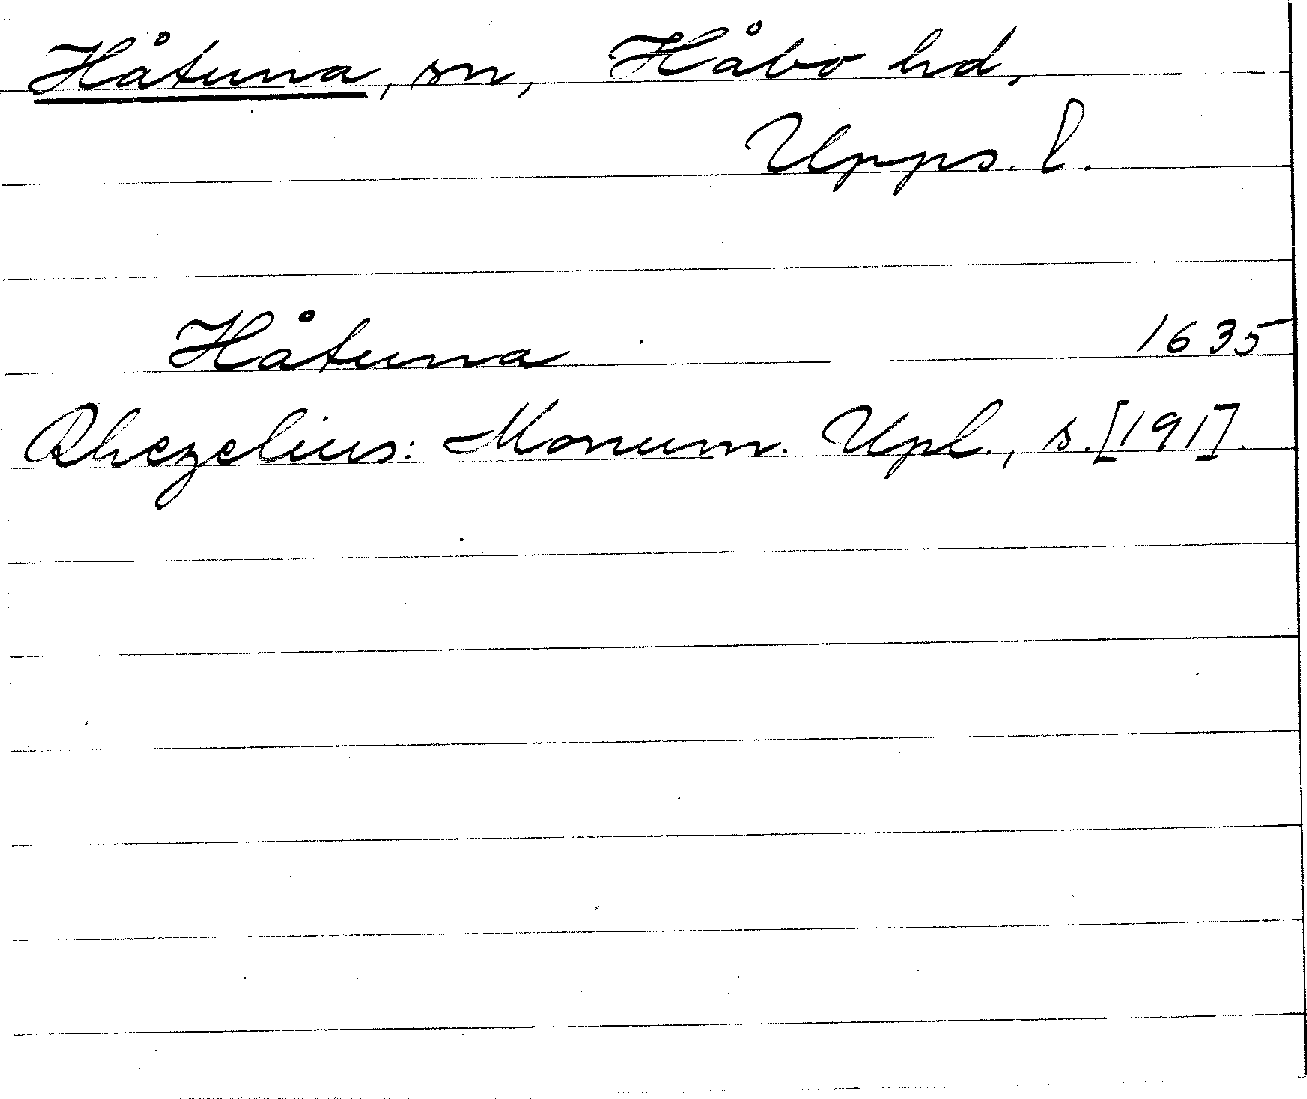 Håtuna, sn, Håbo hd,
Upps. l.
Håtuna 1635
Rhezelius: Monum. Upl., s. [191].